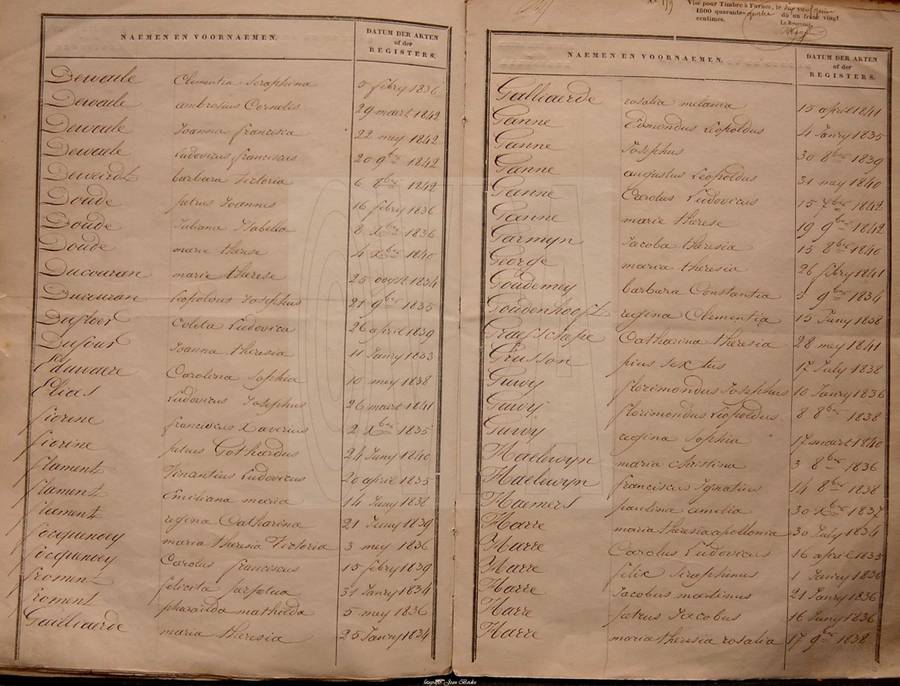 NAEMEN EN VOORNAEMEN. DATUM DER AKTEN
of der
REGISTERS.
Dewaele Clementia Seraphina 5 febry 1836
Dewaele ambrosius Cornelis 29 maart 1842
Dewaele Joanna francisca 22 mey 1842
Dewaele Ludovicus franciscus 20 9bre 1842
Deweirdt barbara Victoria 6 8bre 1842
Doude petrus Joannes 16 febry 1836
Doude Juliana Isabella 8 Xbre 1836
Doude marie therese 4 Xbre 1840
Ducouran marie therese 25 oogst 1834
Ducouran Leopoldus Josephus 21 9bre 1835
Coleta Ludovica 26 april 1839
Dufour Joanna theresia 11 Janry 1833
Carolina Sophia 10 mey 1838
Elias Ludovicus Josephus 26 maart 1841
fiorene franciscus Xaverius 2 Xbre 1835
fiorene petrus Gothardus 24 Juny 1840
filament Venantius Ludovicus 20 april 1835
filament Emiliana maria 14 Juny 1838
filament regina Catharina 21 Juny 1839
focquenoey maria theresia Victoria 3 mey 1836
focquenoey Carolus franciscus 15 febry 1839
froment felicita perpetua 31 Janry 1834
froment pharaïlda mathilda 5 mey 1836
Gailliaerde maria theresia 25 Janry 1834
Visé pour Timbre à Furnes, le dix neuf
1800 quarante-quatre
centimes.
Le Receveur
NAEMEN EN VOORNAEMEN. DATUM DER AKTEN
of der
REGISTERS.
Galliaerde rosalia melania 15 april 1841
Ganne Edmondus Leopoldus 4 Janry 1835
Ganne Josephus 30 8bre 1839
Ganne augustus Leopoldus 31 mey 1840
Ganne Carolus Ludovicus 15 Xbre 1842
Ganne marie therese 19 9bre 1842
Garmyn Jacoba theresia 15 8bre 1840
George maria theresia 26 febry 1841
Goudemey barbara Constantia 3 9bre 1834
Goudenhooft regina Clementia 15 Juny 1838
Graefschepe Catharina theresia 28 mey 1841
Grusson pius sextus 17 July 1838
Guwy florimondus Josephus 10 Janry 1836
Guwy florimondus Leopoldus 8 8bre 1838
Guwy regina Sophia 17 maart 1840
Haelewyn maria Christina 3 8bre 1836
Haelewyn franciscus Ignatius 14 8bre 1838
Haemers paulina amelia 30 Xbre 1837
Harre maria theresia apollonia 30 July 1834
Harre Carolus Ludovicus 16 april 1835
Harre felix Seraphinus 1 Janry 1836
Harre Jacobus martinus 21 Janry 1836
Harre petrus Jacobus 16 Juny 1836
Harre maria theresia rosalia 17 9bre 1838